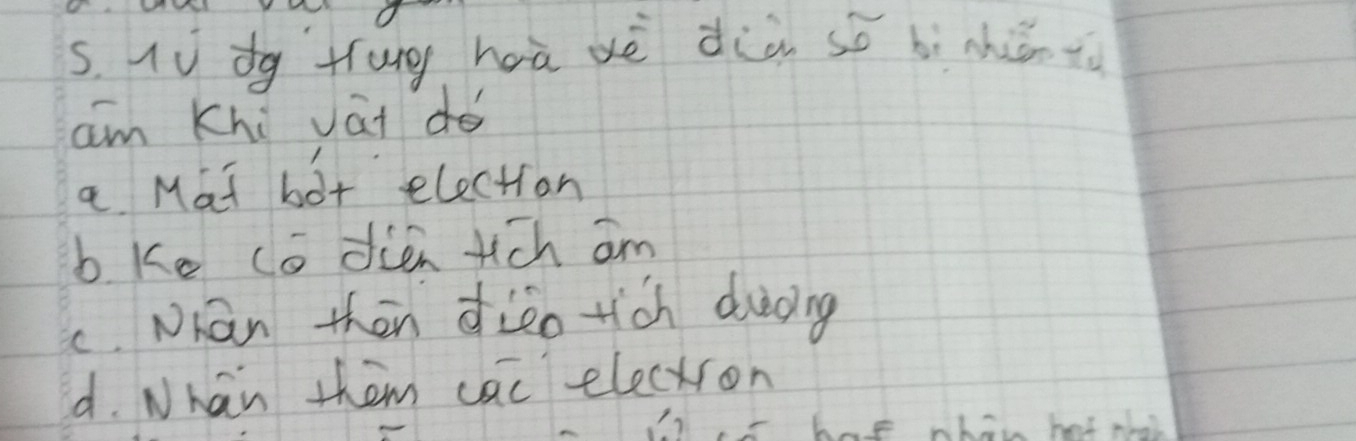 5. từ đg trung hoà về điện sẽ bị nhiễm
âm khi vật đó
a. Mất bớt electron
b. Ko có điện tích âm
c. Nhận thên điện tích dương
d. Nhận thêm các electron